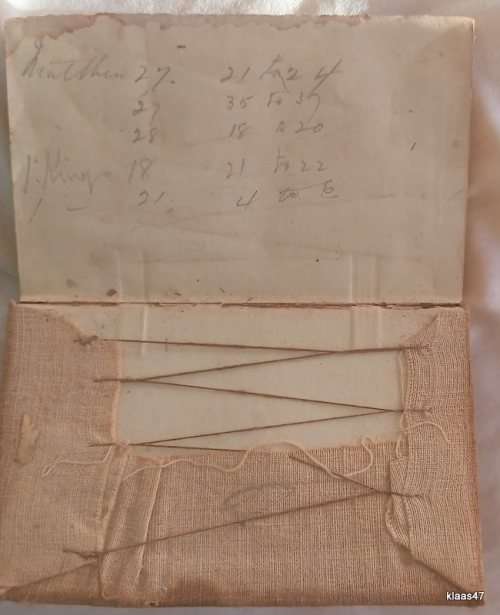 Matthew 27. 21 to 24
27 35 to 37
28 18 to 20
1. Kings 18 21 to 22
1 — 21. 4 to 6
klaas47